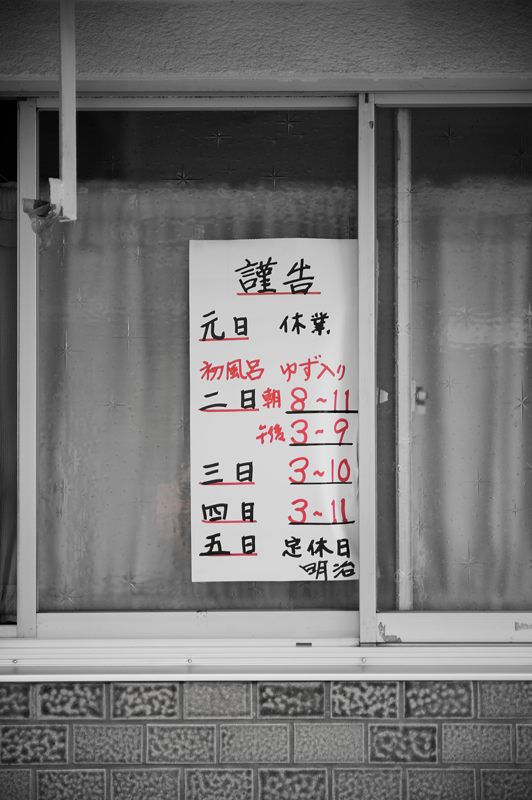 謹告
元日 休業
初風呂 ゆず入り
二日 朝 8~11
午後 3~9
三日 3~10
四日 3~11
五日 定休日
明治